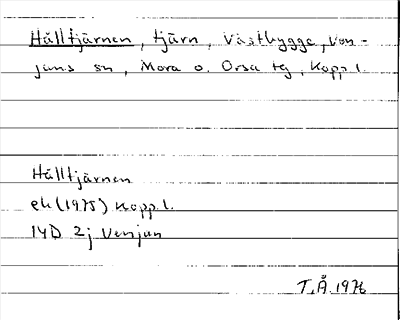 Hålltjärnen, tjärn, Västbygge, Ven-
jans sn, Mora o. Orsa tg, Kopp l.
Hålltjärnen
ek (1975) Kopp. l.
14D 2j Venjan
T.Å. 1976